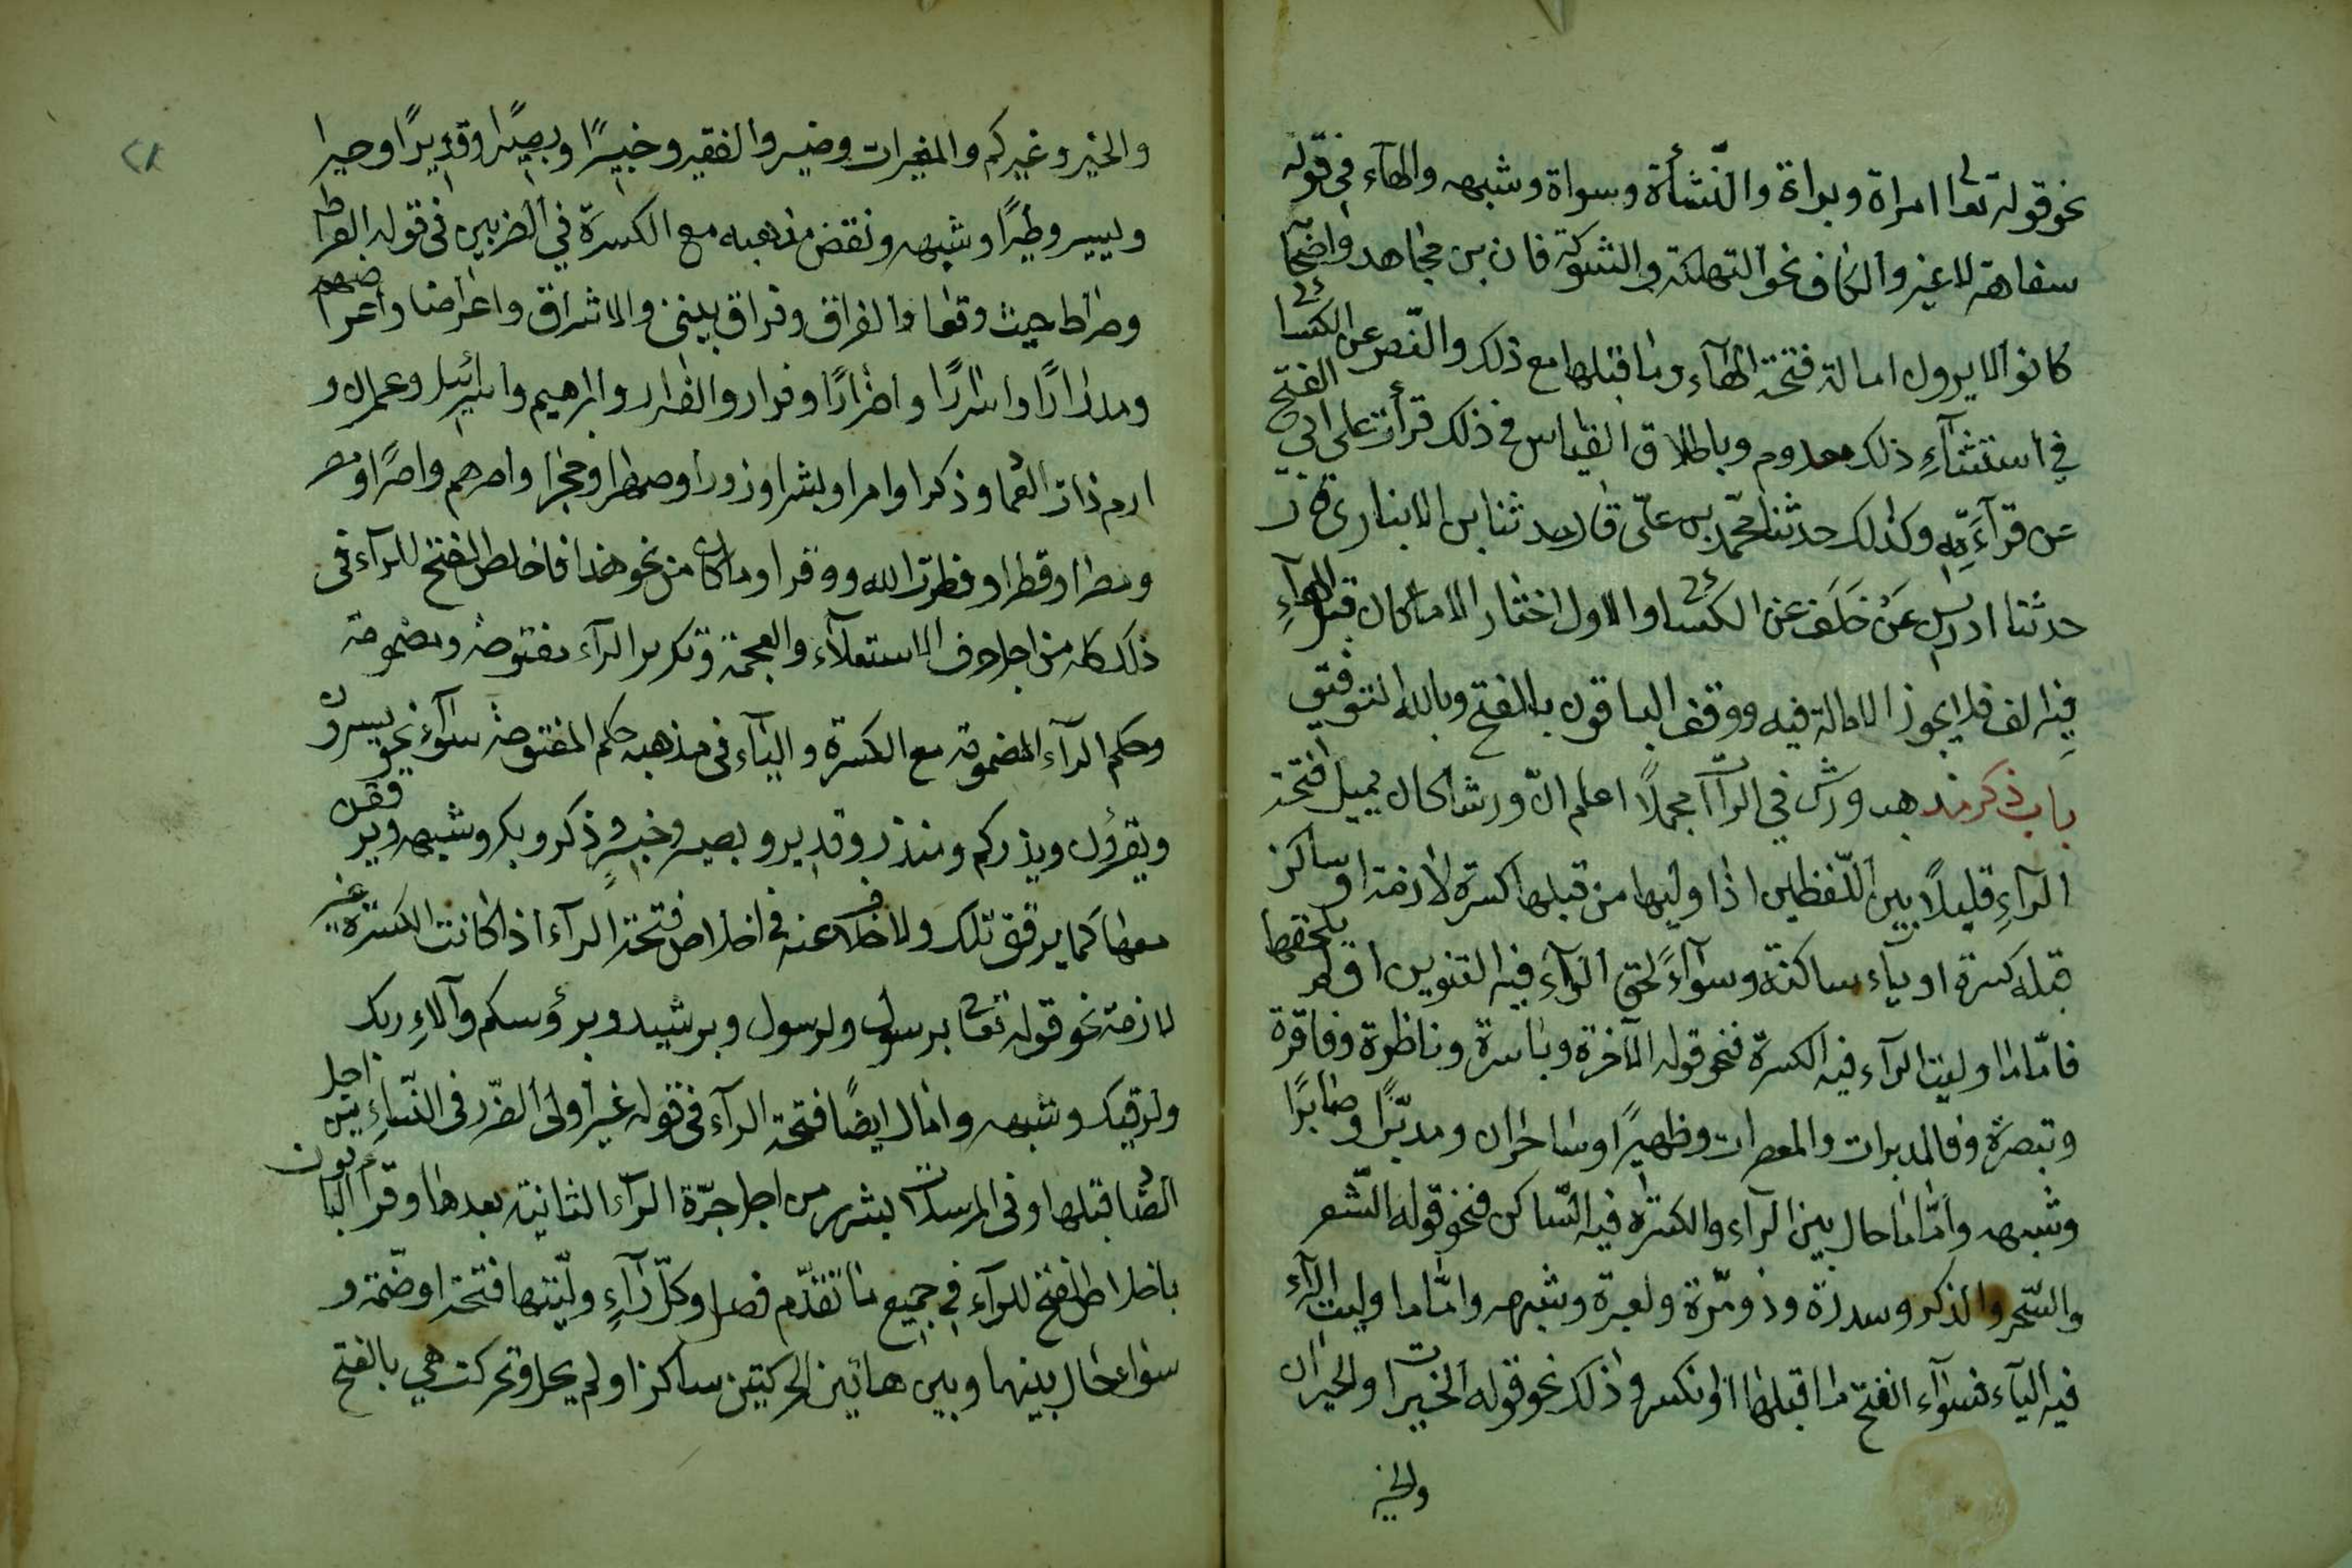 نحو قوله تعا امراة وبراة والنّشأة وسواة وشبهه والهآء فى قوله
سفاهة لا غير والكاف نحو التهلكة والشوكة فان بن مجاهد واضحا
كانوا لا يرون امالة فتحة الهآء وما قبلها مع ذلك والنّص عن الكسا
فى استثنآءِ ذلك معدوم وباطلاق القياس فى ذلك قرأت على ابى الفتح
عن قرآءته وكذلك حدثنا محمّد بن علىّ قال حدثنا بن الانبارى قال
حدثنا ادريس عَنْ خَلَف عن الكسا والاول اختار الا ما كان قبل الهآءِ
فيه الف فلا يجوز الامالة فيه ووقف الباقون بالفتح وبالله التوفيق
باب ذكر مذهب ورش فى الرآآت مجملاً اعلم انّ ورشا كان يميل فتحة
الرآءِ قليلاً بين اللّفظين اذا وليها من قبلها كسرة لازمة او ساكن
قبله كسرة او يآء ساكنة وسوآءً لحق الرآء فيه التنوين او لم يلحقها
فامّا ما وليت الرآء فيه الكسرة فنحو قوله الآخرة وباسرة وناظرة وفاقرة
وتبصرة وفالمدبرات والمعصرات وظهيرًا وساحران ومدبّرًا وصابرًا
وشبهه وامّا ما حال بين الرآء والكسرة فيه السّاكن فنحو قوله الشّعر
والسّحر والذكر وسدرة وذو مرّة ولعبرة وشبهه وامّا ما وليت الرآءِ
فيه اليآء فسوآء انفتح ما قبلها او انكسر وذلك نحو قوله الخيرات والحيران
والخير
٢٨
والخير وغيركم والمغيرات وضير والفقير وخبيرًا وبصيرًا وقديرًا وحيرا
ويسير وطيرًا وشبهه ونقض مذهبه مع الكسرة في الضربين فى قوله الصراط
وصراط حيث وقعا والفراق وفراق بينى والاشراق واعراضا واعراضهم
ومدرارًا واسرارًا واضرارًا وفرارا والفرار وابرهيم واسرائيل وعمران و
ارم ذات العماد وذكرا وامرا وبشرا وزورا وصهرا وحجرا وامرهم واصرًا ومصر
ومصرا وقطرا وفطرت الله ووقرا وما كان من نحو هذا فاخلص الفتح للرآء فى
ذلك كله من اجل حرف الاستعلآء والعجمة وتكرير الرآء مفتوحة ومضمومة
وحكم الرآء المضمومة مع الكسرة واليآء فى مذهبه حكم المفتوحة سوآء نحو يسرون
ويقرؤن ويذركم ومنذر وقدير وبصير وخبير وذكر وبكر وشبهه ويرققن
معها كما يرقق تلك ولا خلاف عنه فى اخلاص فتحة الرآء اذا كانت الكسرة غير
لازمة نحو قوله تعا برسول ولرسول وبرشيد وبرؤسكم وآلاءِ ربك
ولرقيك وشبهه وامال ايضًا فتحة الرآء فى قوله غير اولى الضّرر فى النّساءِ بين اجل
الضّاد قبلها وفى المرسلات بشرر من اجل جرّة الرآء الثانية بعدها وقرا الباقون
باخلاص الفتح للرآء فى جميع ما تقدّم فصل وكلّ رآءٍ وليّتها فتحة او ضّمة و
سواء حال بينها وبين هاتين الحركتين ساكن او لم يحل وتحركت هي بالفتح